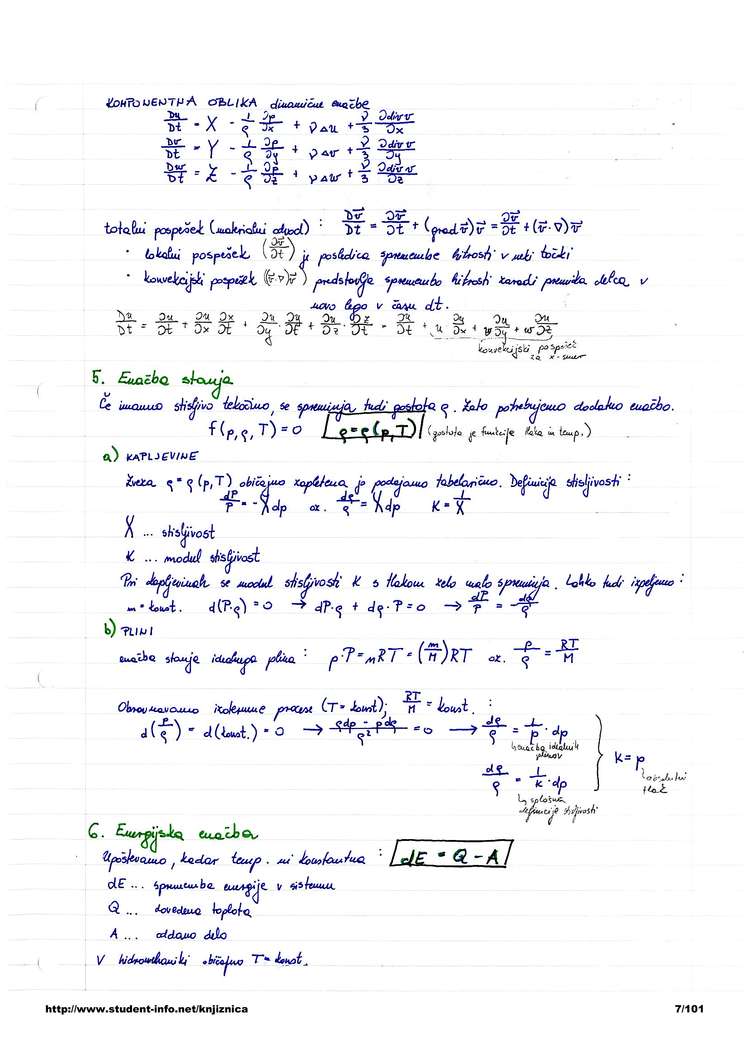 KOMPONENTNA OBLIKA dinamične enačbe
Du/Dt = X - 1/ρ ∂p/∂x + ν Δu + ν/3 ∂div v/∂x
Dv/Dt = Y - 1/ρ ∂p/∂y + ν Δv + ν/3 ∂div v/∂y
Dw/Dt = Z - 1/ρ ∂p/∂z + ν Δw + ν/3 ∂div v/∂z
totalni pospešek (materialni odvod) : Dv⃗/Dt = ∂v⃗/∂t + (grad v⃗) v⃗ = ∂v⃗/∂t + (v⃗·∇) v⃗
· lokalni pospešek (∂v⃗/∂t) je posledica spremembe hitrosti v neki točki
· konvekcijski pospešek ((v⃗·∇)v⃗) predstavlja spremembo hitrosti zaradi premika delca v
novo lego v času dt.
Du/Dt = ∂u/∂t + ∂u/∂x ∂x/∂t + ∂u/∂y · ∂y/∂t + ∂u/∂z · ∂z/∂t = ∂u/∂t + u ∂u/∂x + v ∂u/∂y + w ∂u/∂z
konvekcijski pospešek
za x-smer
5. Enačba stanja
Če imamo stisljivo tekočino, se spreminja tudi gostota ρ. Zato potrebujemo dodatno enačbo.
f(p, ρ, T) = 0 ρ = ρ(p, T) (gostota je funkcija tlaka in temp.)
a) KAPLJEVINE
Zveza ρ = ρ(p, T) običajno zapletena jo podajamo tabelarično. Definicija stisljivosti :
dP/P = - X dp oz. dρ/ρ = X dp K = 1/X
X ... stisljivost
K ... modul stisljivost
Pri kapljevinah se modul stisljivosti K s tlakom zelo malo spreminja. Lahko tudi izpeljemo :
m = konst. d(P·ρ) = 0 → dP·ρ + dρ·P = 0 → dP/P = - dρ/ρ
b) PLINI
enačba stanja idealnega plina : p·P = mRT = (m/M) RT oz. p/ρ = RT/M
Obravnavamo izotermne procese (T = konst); RT/M = konst. :
d(p/ρ) = d(konst.) = 0 → (ρdp - pdρ)/ρ² = 0 → dρ/ρ = 1/p · dp
↳ enačba idealnih
plinov
K = p
↳ absolutni
tlak
dρ/ρ = 1/K · dp
↳ splošna
definicija stisljivosti
6. Energijska enačba
Upoštevamo, kadar temp. ni konstantna : dE = Q - A
dE ... sprememba energije v sistemu
Q ... dovedena toplota
A ... oddano delo
V hidromehaniki običajno T = konst.
http://www.student-info.net/knjiznica
7/101